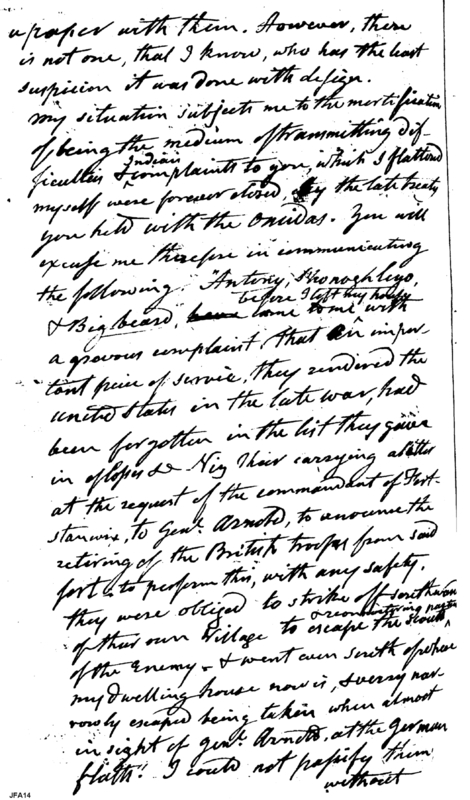 a paper with them. However, there
is not one, that I know, who has the least
suspicion it was done with design.
My situation subjects me to the mortification
of being the medium of transmitting dif-
ficulties & Indian complaints to you, which I flattered
myself were forever closed by the late treaty
you held with the Oneidas. You will
excuse me therefore in communicating
the following. "Antony,
& Big beard, before I left my house came to me with
a grevous complaint, that an impor
tant piece of service, they rendered the
United States in the late war, had
been forgotten in the list they gave
in of losses &c Viz Their carrying a letter
at the request of the commandant of Fort-
stanwix, to Genl. Arnold, to anounce the
retiring of the British troops from said
fort & to perform this, with any safety,
they were obliged to strike off southward
of their own Village to escape the scouts & reconoitering party
of the Enemy - & went even south of where
my dwelling house now is, & very nar-
rowly escaped being taken when almost
in sight of genl. Arnold, at the German
flatts! I could not passify them
without
JFA14